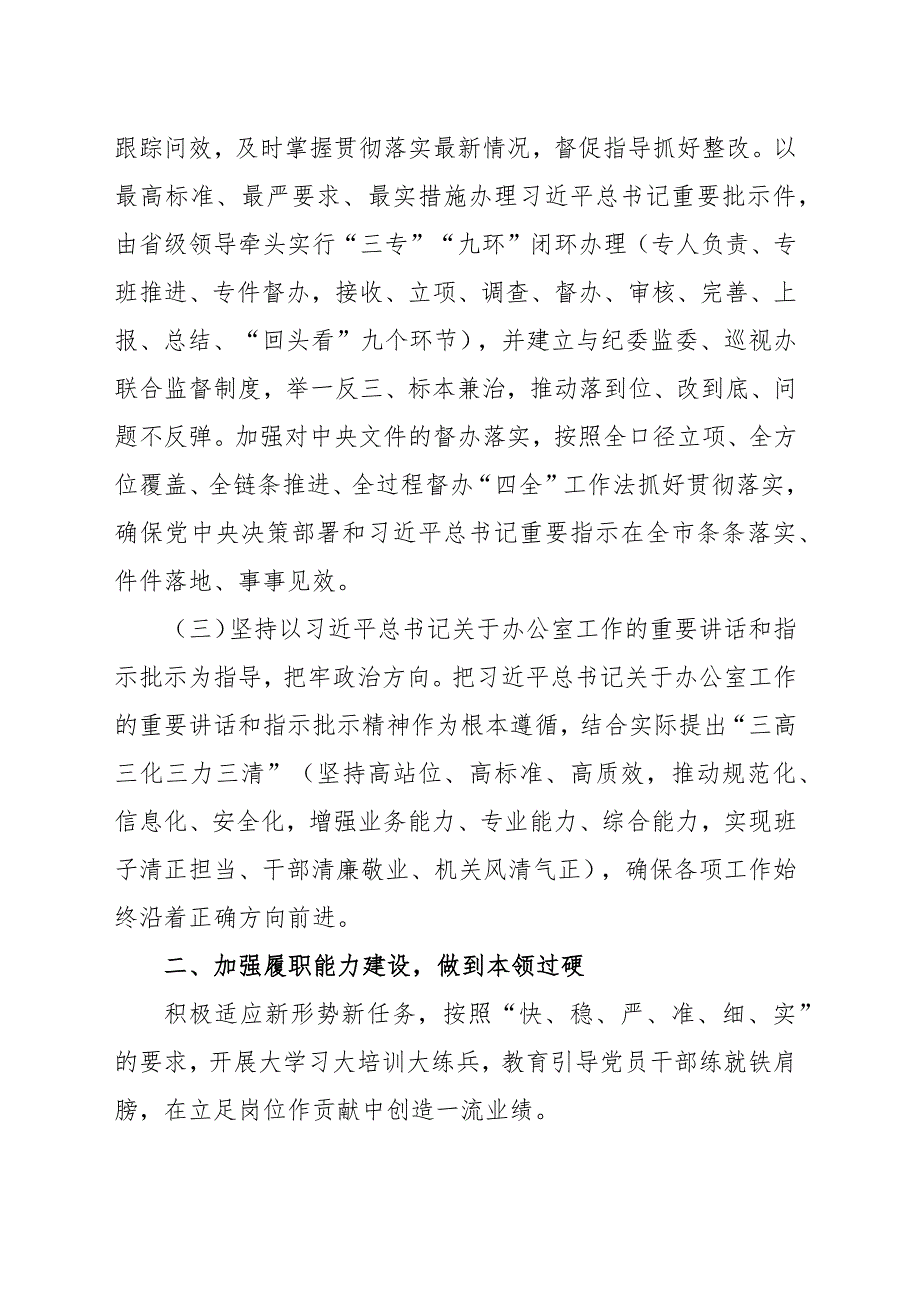 跟踪问效，及时掌握贯彻落实最新情况，督促指导抓好整改。以
最高标准、最严要求、最实措施办理习近平总书记重要批示件，
由省级领导牵头实行“三专”“九环”闭环办理（专人负责、专
班推进、专件督办，接收、立项、调查、督办、审核、完善、上
报、总结、“回头看”九个环节），并建立与纪委监委、巡视办
联合监督制度，举一反三、标本兼治，推动落到位、改到底、问
题不反弹。加强对中央文件的督办落实，按照全口径立项、全方
位覆盖、全链条推进、全过程督办“四全”工作法抓好贯彻落实，
确保党中央决策部署和习近平总书记重要指示在全市条条落实、
件件落地、事事见效。
（三）坚持以习近平总书记关于办公室工作的重要讲话和指
示批示为指导，把牢政治方向。把习近平总书记关于办公室工作
的重要讲话和指示批示精神作为根本遵循，结合实际提出“三高
三化三力三清”（坚持高站位、高标准、高质效，推动规范化、
信息化、安全化，增强业务能力、专业能力、综合能力，实现班
子清正担当、干部清廉敬业、机关风清气正），确保各项工作始
终沿着正确方向前进。
二、加强履职能力建设，做到本领过硬
积极适应新形势新任务，按照“快、稳、严、准、细、实”
的要求，开展大学习大培训大练兵，教育引导党员干部练就铁肩
膀，在立足岗位作贡献中创造一流业绩。